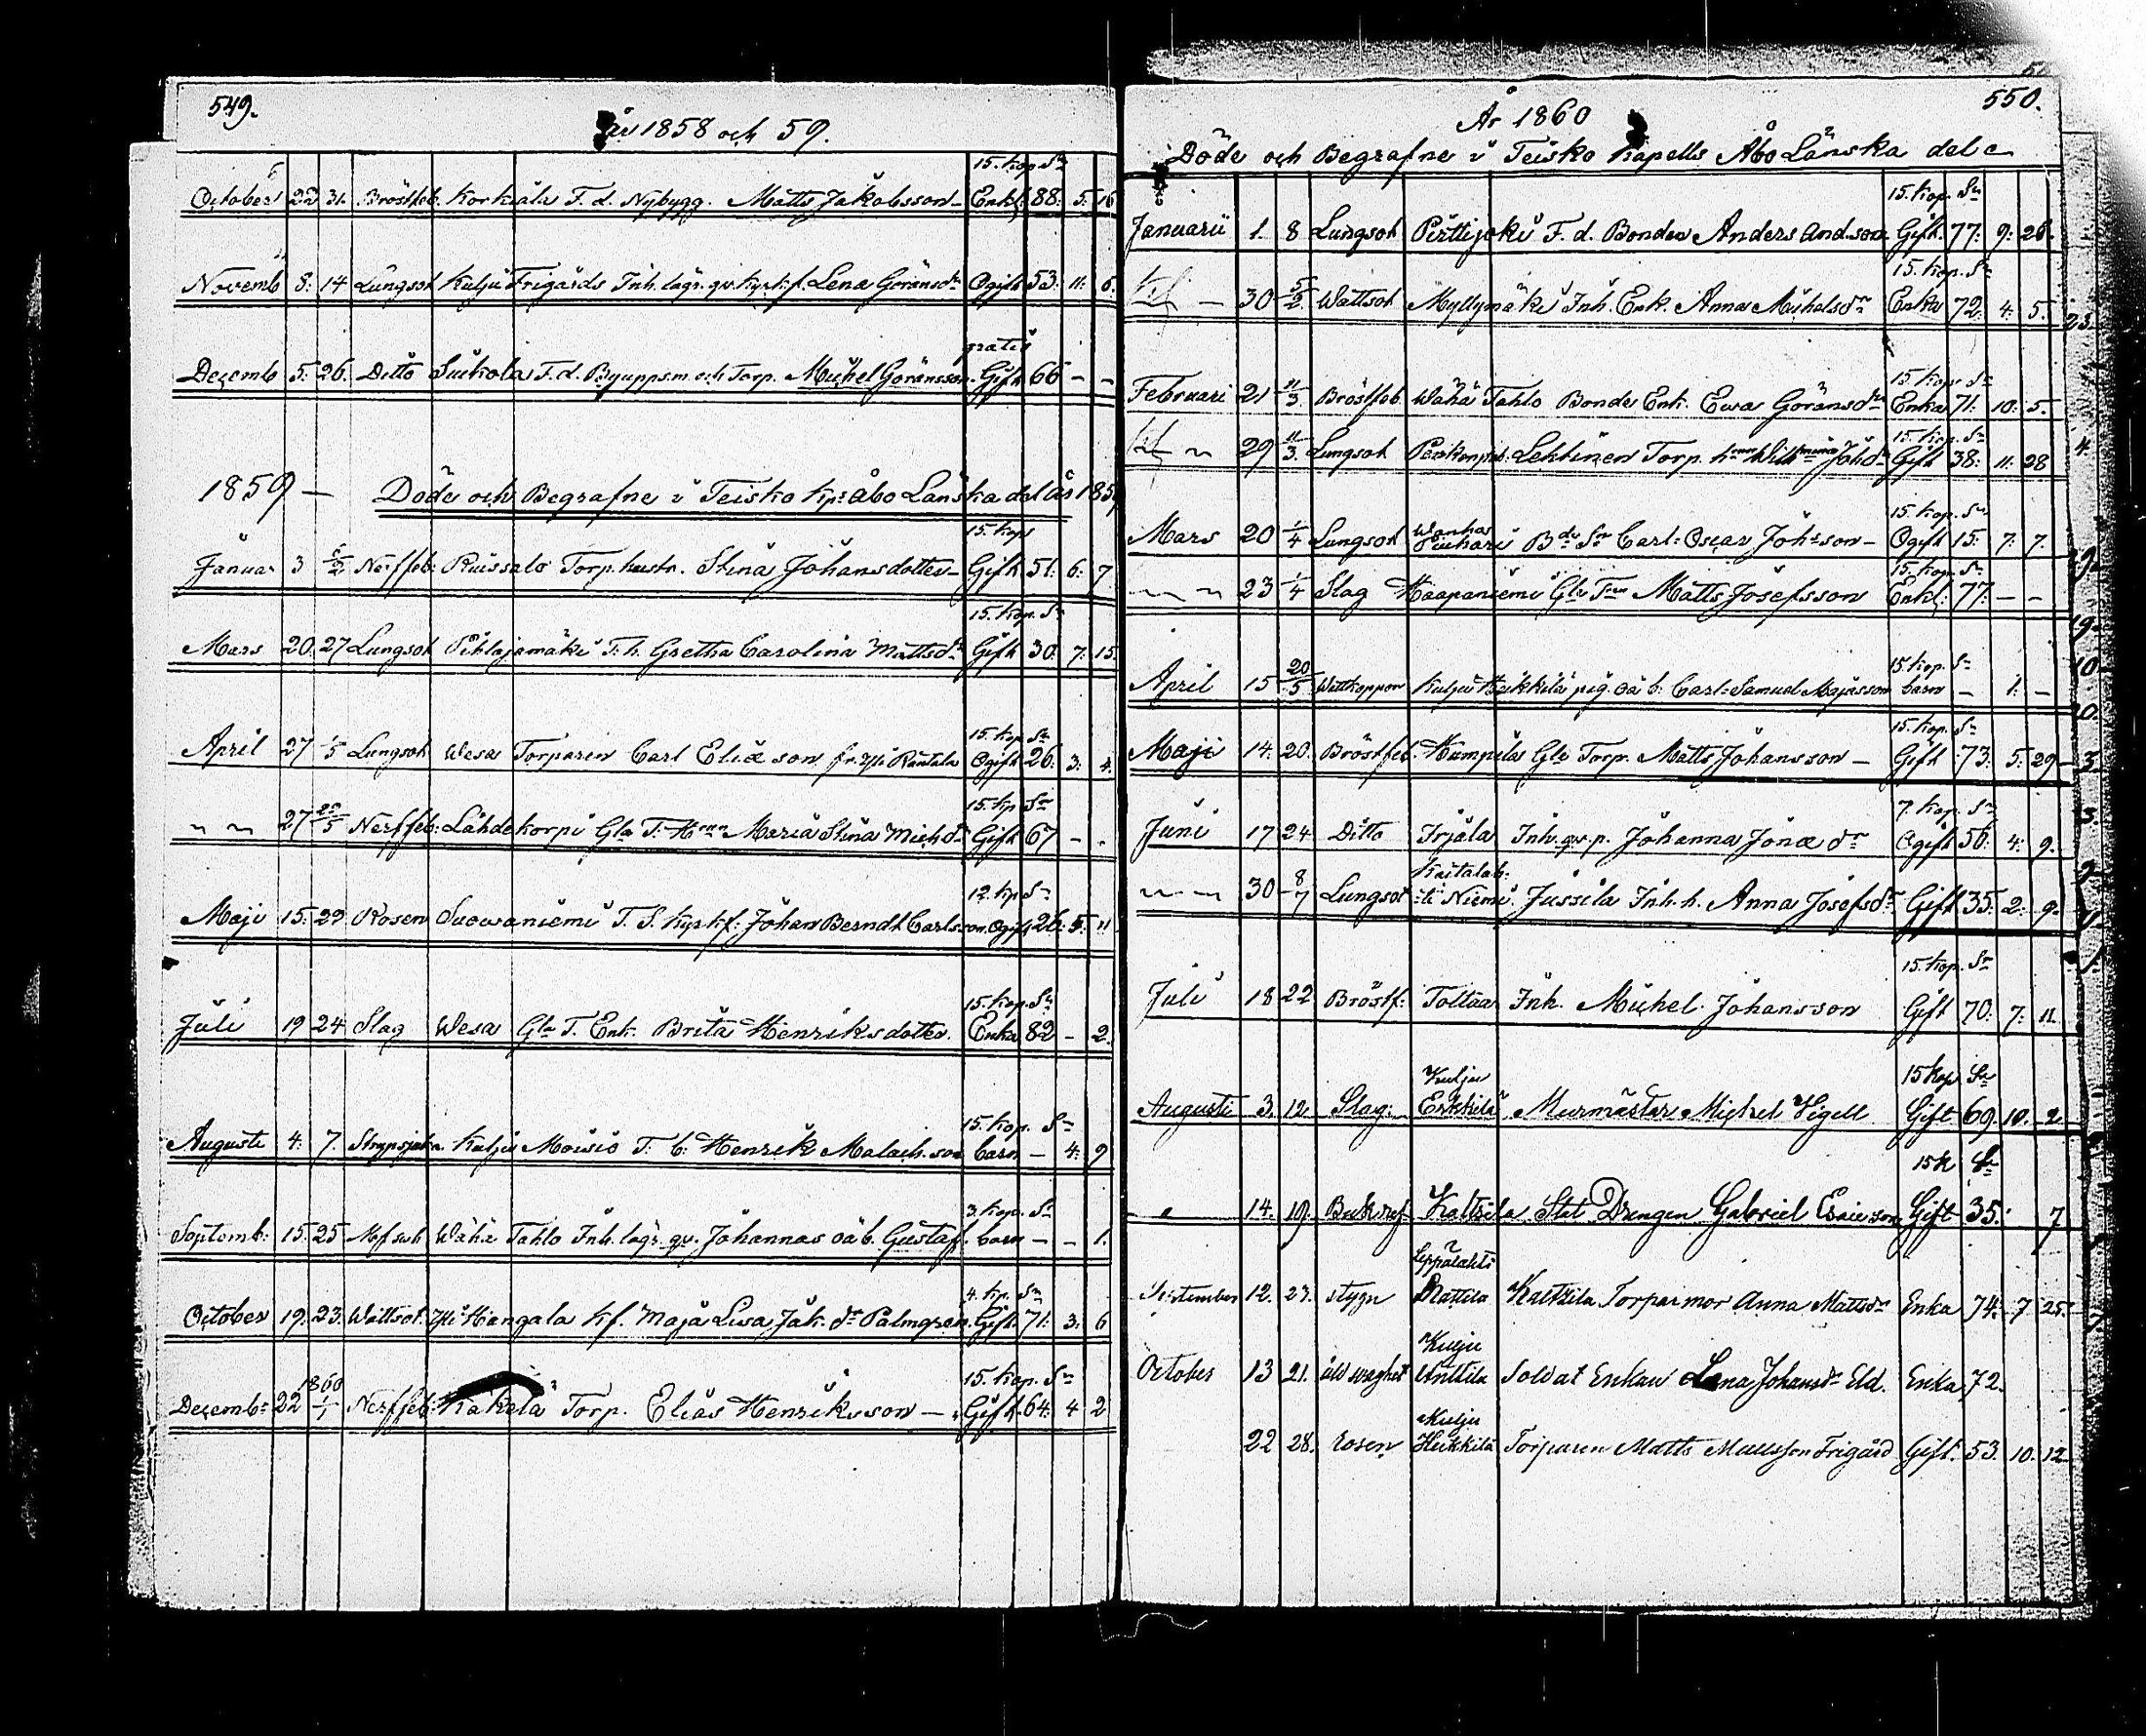 549.
År 1858 och 59.
15. Kop. Sr
October 22 31. Bröstfeb. Korkiala F. d. Nybygg. Matts Jakobsson Enkl. 88. 5. 16
Novemb 8. 14 Lungsot Kulju Frigårds Inh. lägr. qv. Kyrkf. Lena Göransdr Ogift 53. 11. 6.
gratis
Decemb 5. 26. Ditto Suikola F. d. Byuppsm. och Torp. Michel Göransson. Gift 66 - -
1859 — Döde och Begrafne i Teisko Kp: Åbo Länska del År 1859
15. Kop
Januar 3 6/2 Nerffeb: Ruissalo Torp. hustr. Stina Johansdotter Gift 51. 6. 7
15. Kop. Sr
Mars 20. 27 Lungsot Pihlajamäki T. h. Gretha Carolina Mattsdr Gift 30. 7. 15.
15. Kop Sr
April 27 1/5 Lungsot Wesa Torparen Carl Eliæ son fr. Yli Rantala Ogift 26. 3. 4.
15. Kp Sr
" " 27 22/5 Nerffeb: Lähdekorpi Gla T. Maria Stina Michdr Gift 67 - -
12. Kp Sr
Maji 15. 29. Rosen Suowaniemi T. S. Kyrkf. Johan Berndt Carlsson. Ogift 26. 5. 11
15. Kop. Sr
Juli 19 24 Slag Wesa Gla T. Enk. Brita Henriksdotter. Enka 82 - 2.
15. Kop. Sr
Augusti 4. 7. Strypsjuka Kulju Moisio T. b. Henrik Malach. son barn - 4. 9
3. Kop. Sr
Septemb: 15. 25 Wähä Tahlo Inh. lägr. qv. Johannas oä b. Gustaf. barn - - 1.
4. Kp. Sr
October 19. 23. Wattsot. Yli Kangala Kf. Maja Lisa Jak. dr Palmgren. Gift 71. 3. 6
1860 15. Kop. Sr
Decembr 22 1/1 Nerffeb: Kakela Torp. Elias Henriksson — Gift. 64. 4 2
550.
År 1860
Döde och Begrafne i Teisko Kapells Åbo Länska del
15. Kop. Sr
Januarii 1. 8 Lungsot Pirttijoki F. d. Bonden Anders And. son Gift. 77. 9. 26.
15. Kop. Sr
— 30 5/2 Wattsot Myllymäki Inh. Enk. Anna Michelsdr Enka 72. 4. 5.
15. Kop. Sr
Februari 21 11/3 Bröstfeb. Wähä Tahlo Bonde Enk. Ewa Göransdr Enka 71. 10. 5.
15. Kop. Sr
29 11/3. Lungsot Lehtinen Torp. Johdr Gift 38. 11. 28
15. Kop. Sr
Wanhas
Mars 20 1/4 Lungsot Bde Sn Carl Oscar Johsson Ogift 15. 7. 7.
15. Kop. Sr
" " 23 1/4 Slag Haapaniemi Gla Matts Josefsson Enkl. 77. - -
15. Kop. Sr
April 15 20/5 Wattkoppor Kulju Heikkilä pig. oä b. Carl Samuel Majasson barn - 1. -
15. Kop. Sr
Maji 14. 20. Bröstfeb. Hampila Gla Torp. Matts Johansson — Gift 73. 5. 29
7. Kop. Sr
Juni 17 24 Ditto Irjala Inh. qv. p. Johanna Jonæ dr Ogift 56. 4. 9.
Kaitalah:
" " 30 8/7 Lungsot ti Niemi. Jussila Inh. h. Anna Josefsdr Gift 35. 2. 9.
15. Kop. Sr
Juli 18 22 Bröstf: Toltaa Inh. Michel Johansson Gift 70. 7. 11.
Kulju 15 Kop Sr
Augusti 3. 12. Slag. Erkkilä Murmästar Michel Vigell Gift 69. 10. 2.
15 K Sr
" 14. 19. Kaltsila Stat Drengen Gabriel Esaie son Gift 35. 7
Leppälahti
September 12. 23. stygn Rattila Kaltsila Torparmor Anna Mattsdr Enka 74. 7 25.
Kulju
October 13 21. åld svaghet Anttila Soldat Enkan Lena Johansdr Eld. Enka 72.
Kulju
22 28. rosen Heikkilä Torparen Matts Mattsson Frigård Gift. 53. 10. 12.